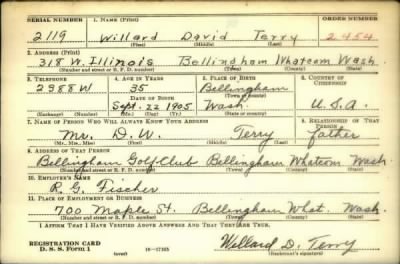 SERIAL NUMBER 1. NAME (Print) ORDER NUMBER
2119 Willard David Terry 2454
(First) (Middle) (Last)
2. ADDRESS (Print)
318 W. Illinois Bellingham Whatcom Wash.
(Number and street or R. F. D. number) (Town) (County) (State)
3. TELEPHONE 4. AGE IN YEARS 5. PLACE OF BIRTH 6. COUNTRY OF CITIZENSHIP
2388W 35 Bellingham
DATE OF BIRTH (Town or county)
Sept. 22 1905 Wash. U.S.A.
(Mo.) (Day) (Yr.) (State or country)
7. NAME OF PERSON WHO WILL ALWAYS KNOW YOUR ADDRESS 8. RELATIONSHIP OF THAT PERSON
Mr. D. W. Terry father
(Mr., Mrs., Miss) (First) (Middle) (Last)
9. ADDRESS OF THAT PERSON
Bellingham Golf Club Bellingham Whatcom Wash
(Number and street or R. F. D. number) (Town) (County) (State)
10. EMPLOYER'S NAME
R. G. Fischer
11. PLACE OF EMPLOYMENT OR BUSINESS
700 Maple St. Bellingham What. Wash.
(Number and street or R. F. D. number) (Town) (County) (State)
I AFFIRM THAT I HAVE VERIFIED ABOVE ANSWERS AND THAT THEY ARE TRUE.
REGISTRATION CARD
D. S. S. Form 1 (over) Willard D. Terry
(Registrant's signature)